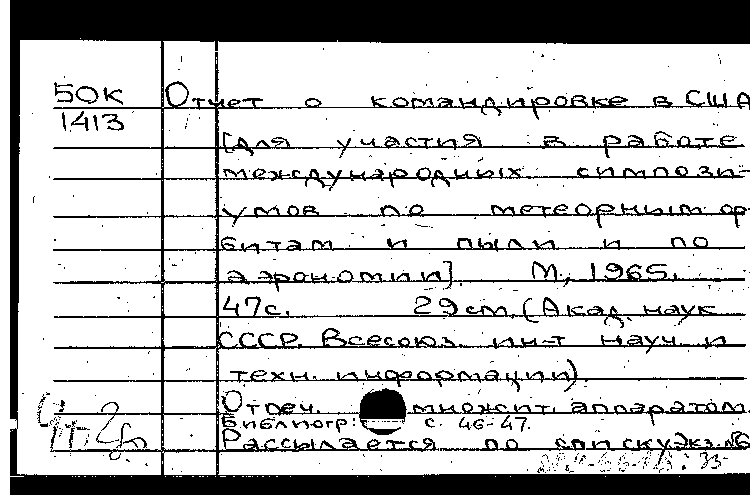 БОК
1413
Отчет о командировке в США
[для участия в работе
международных симпози-
умов по метеорным ор-
битам и пыли и по
аэрономии]. М., 1965.
47с. 29см. (Акад. наук
СССР. Всесоюз. ин-т науч. и
техн. информации).
Отпеч. множит. аппаратом
Библиогр: с. 46-47.
Рассылается по списку Экз. №6